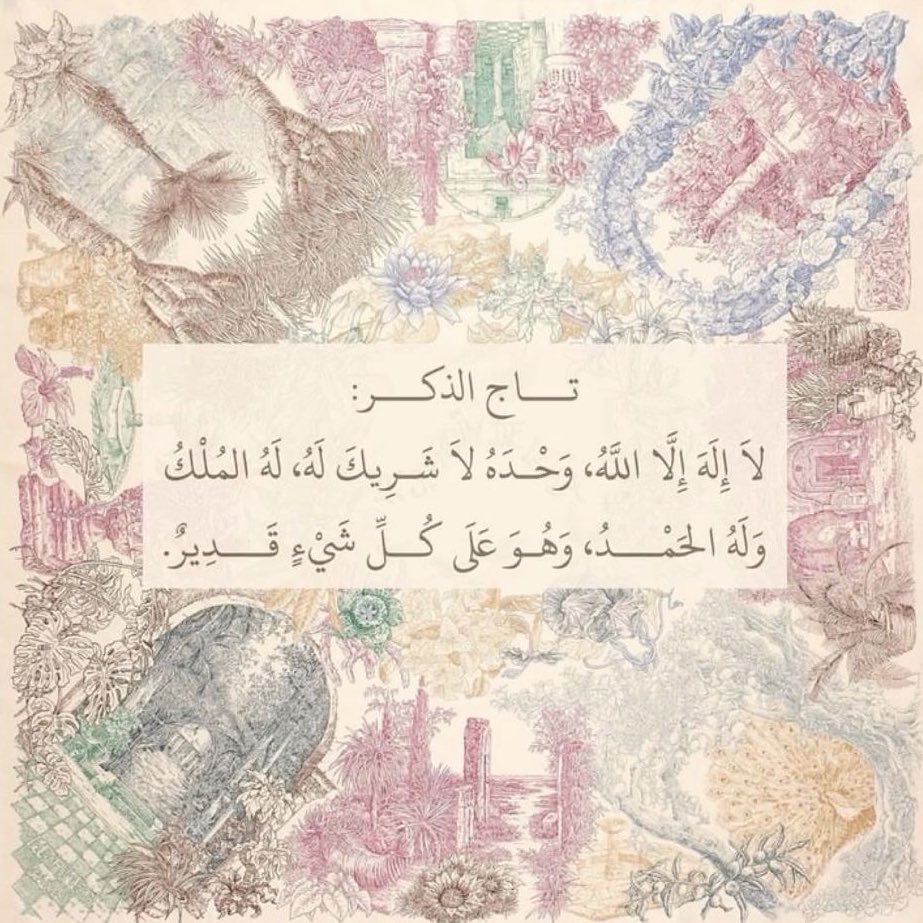 تـــاج الذكـــر:
لاَ إِلَهَ إِلَّا اللَّهُ، وَحْـدَهُ لاَ شَـرِيكَ لَهُ، لَهُ المُلْكُ
وَلَهُ الحَمْـــدُ، وَهُـوَ عَلَى كُـــلِّ شَيْءٍ قَـــدِيرٌ.